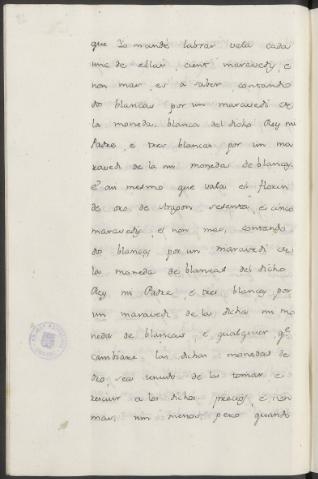 que Io mandé labrar vala cada
una de ellas cient maravedys, e
non mas, es a saber contando
dos blancas por un maravedi de
la moneda blanca del dicho Rey mi
Padre, e tres blancas por un ma
ravedi de la mi moneda de blancas,
e an mesmo que vala el florin
de oro de Aragon sesenta, e cinco
maravedys, e non mas, contando
dos blancas por un maravedi de
la moneda de blancas del dicho
Rey mi Padre, e tres blancas por
un maravedi de la dicha mi mo
neda de blancas, e qualquier qe
cambiare las dichas monedas de
oro, sea tenudo de las tomar e
rescivir a los dichos precios, e non
mas, nin menos, pero quando